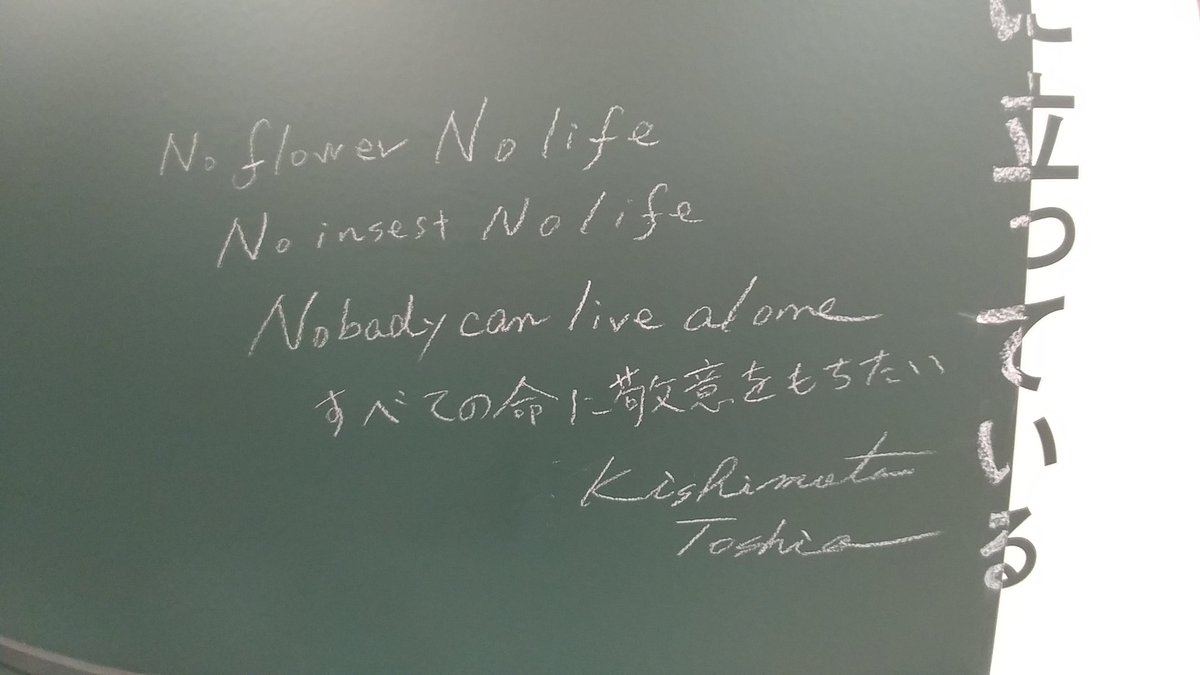 No flower No life
No insest No life
Nobady can live alone
すべての命に敬意をもちたい
Kishimoto
Toshio
に立っている